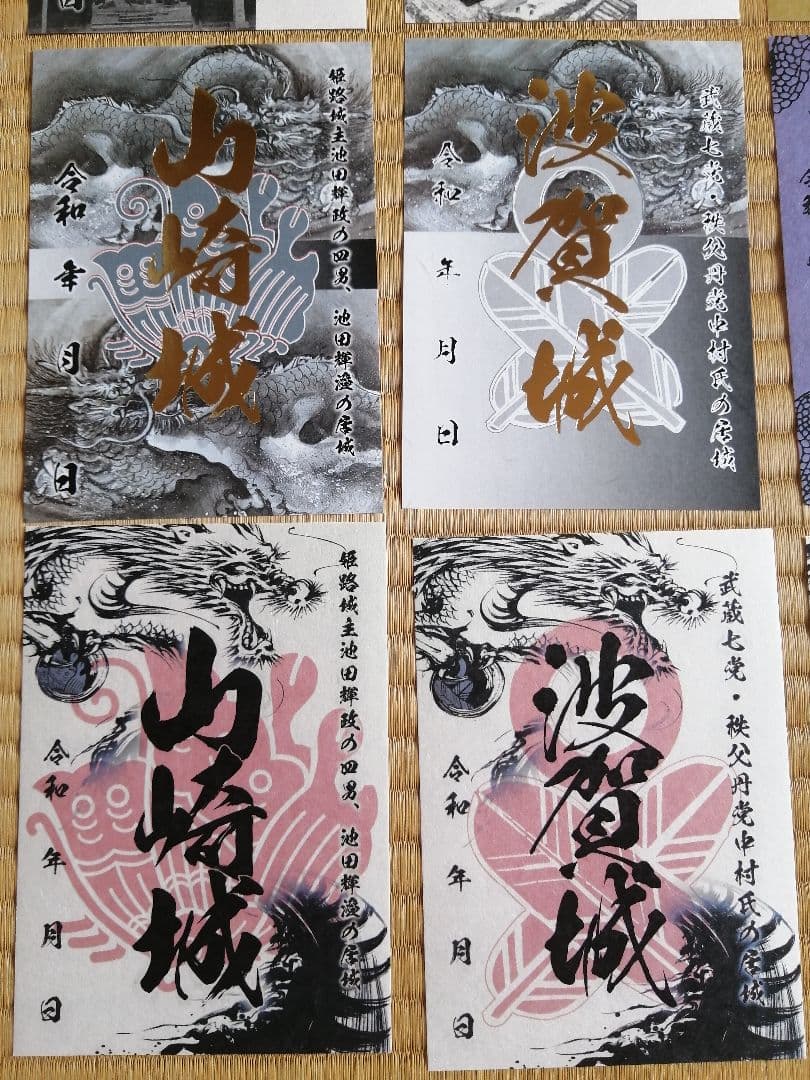 日
姫路城主池田輝政の四男、池田輝澄の居城
山崎城
令和 年 月 日
武蔵七党・秩父丹党中村氏の居城
波賀城
令和 年 月 日
姫路城主池田輝政の四男、池田輝澄の居城
山崎城
令和 年 月 日
武蔵七党・秩父丹党中村氏の居城
波賀城
令和 年 月 日